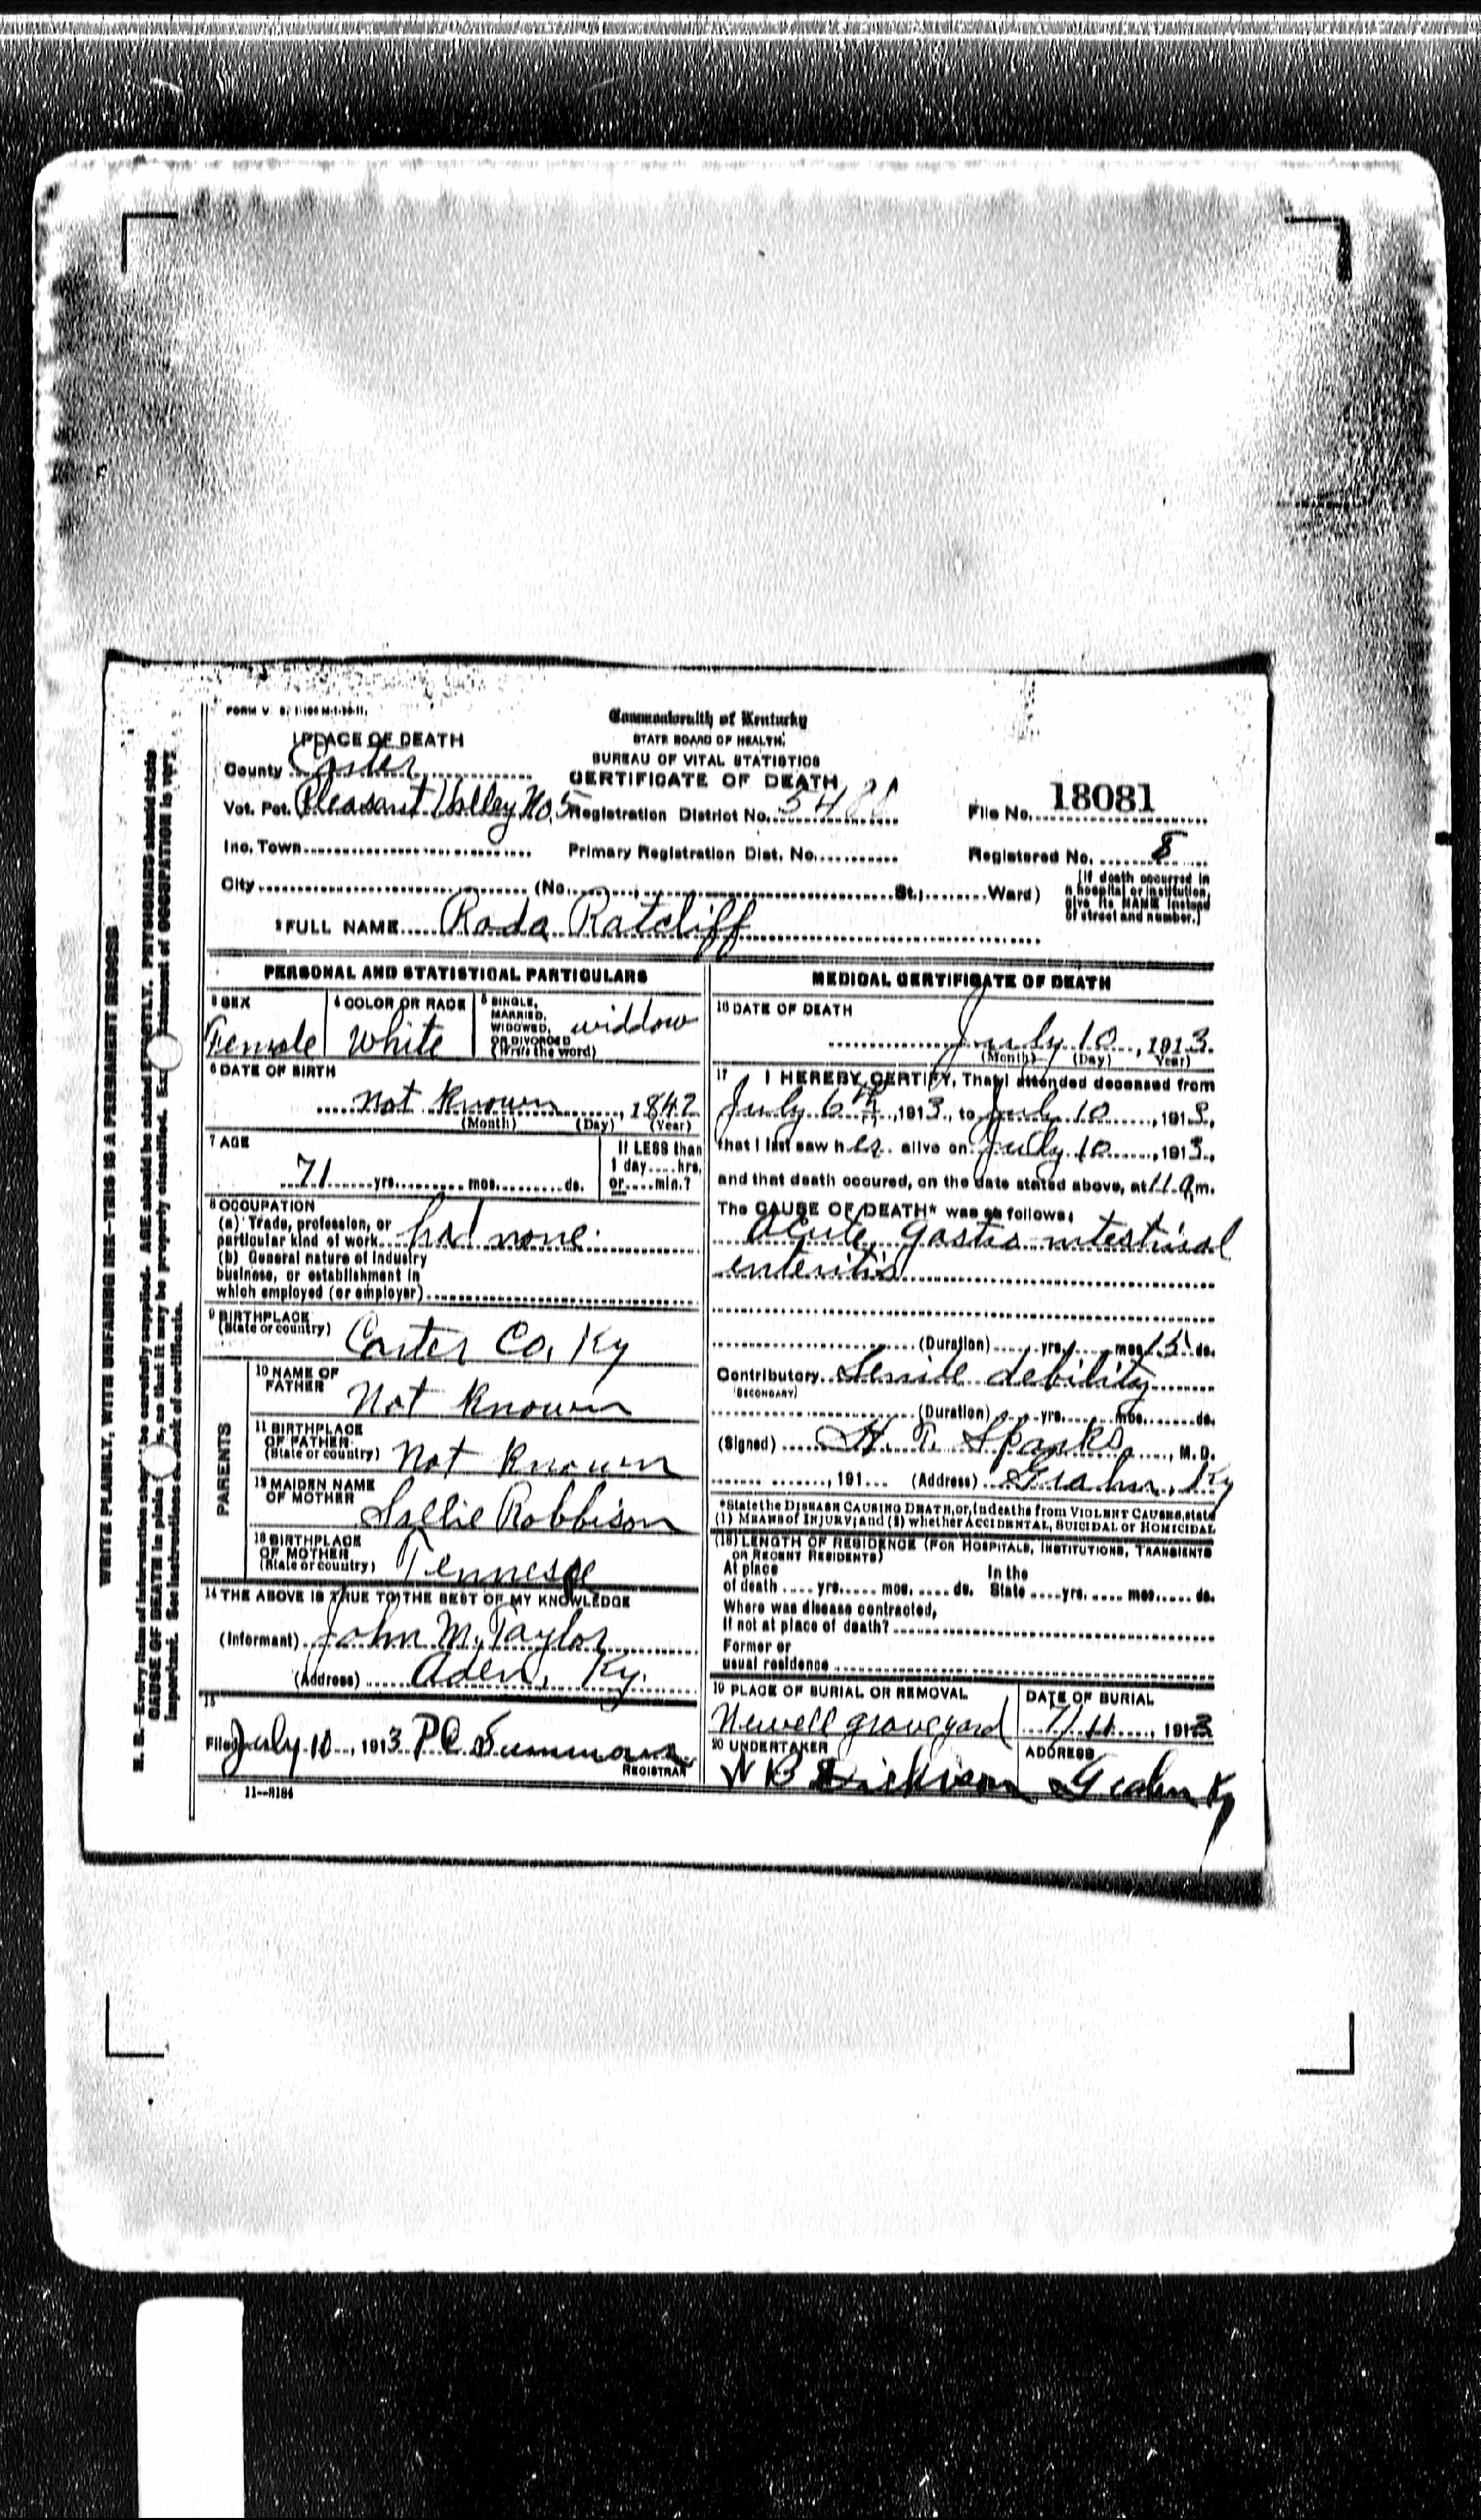 FORM V. S. 1-100 M-1-30-11.
Commonwealth of Kentucky
STATE BOARD OF HEALTH.
BUREAU OF VITAL STATISTICS
CERTIFICATE OF DEATH
1 PLACE OF DEATH
County Carter
Vot. Pct. Pleasant Valley No. 5 Registration District No. 5488 File No. 18081
Inc. Town Primary Registration Dist. No. Registered No. 8
City (No. St.; Ward) [If death occurred in
a hospital or institution,
give its NAME instead
of street and number.]
2 FULL NAME Roda Ratcliff
PERSONAL AND STATISTICAL PARTICULARS
3 SEX
Female
4 COLOR OR RACE
White
5 SINGLE,
MARRIED,
WIDOWED,
OR DIVORCED
(Write the word)
widdow
6 DATE OF BIRTH
not known, 1842
(Month) (Day) (Year)
7 AGE
71 yrs. mos. ds.
If LESS than
1 day.... hrs.
or.... min.?
8 OCCUPATION
(a) Trade, profession, or
particular kind of work had none
(b) General nature of industry
business, or establishment in
which employed (or employer)
9 BIRTHPLACE
(State or country) Carter Co, Ky
PARENTS
10 NAME OF
FATHER Not Known
11 BIRTHPLACE
OF FATHER
(State or country) Not Known
12 MAIDEN NAME
OF MOTHER Sallie Robbison
13 BIRTHPLACE
OF MOTHER
(State or country) Tennesee
14 THE ABOVE IS TRUE TO THE BEST OF MY KNOWLEDGE
(Informant) John M. Taylor
(Address) Aden, Ky.
15
Filed July 10, 1913 P C Summons
REGISTRAR
11--8184
MEDICAL CERTIFICATE OF DEATH
16 DATE OF DEATH
July 10, 1913.
(Month) (Day) (Year)
17 I HEREBY CERTIFY, That I attended deceased from
July 6th, 1913, to July 10, 1913,
that I last saw her alive on July 10, 1913,
and that death occured, on the date stated above, at 11 a m.
The CAUSE OF DEATH* was as follows:
Acute gastro intestinal
enteritis
(Duration) yrs. mos 15 ds.
Contributory Senile debility
(SECONDARY)
(Duration) yrs. mos. ds.
(Signed) H. T. Sparks, M. D.
, 191 (Address) Grahn, Ky
*State the DISEASE CAUSING DEATH, or, in deaths from VIOLENT CAUSES, state
(1) MEANS of INJURY; and (2) whether ACCIDENTAL, SUICIDAL or HOMICIDAL
(18) LENGTH OF RESIDENCE (FOR HOSPITALS, INSTITUTIONS, TRANSIENTS
OR RECENT RESIDENTS)
At place In the
of death.... yrs..... mos..... ds. State.... yrs..... mos..... ds.
Where was disease contracted,
If not at place of death?
Former or
usual residence
19 PLACE OF BURIAL OR REMOVAL
Newell graveyard
DATE OF BURIAL
7/11, 1913
20 UNDERTAKER
W B Dickison
ADDRESS
Grahn Ky
WRITE PLAINLY, WITH UNFADING INK--THIS IS A PERMANENT RECORD
N. B. Every item of information should be carefully supplied. AGE should be stated EXACTLY. PHYSICIANS should state
CAUSE OF DEATH in plain so that it may be properly classified. statement of OCCUPATION is very
important. See instructions back of certificate.